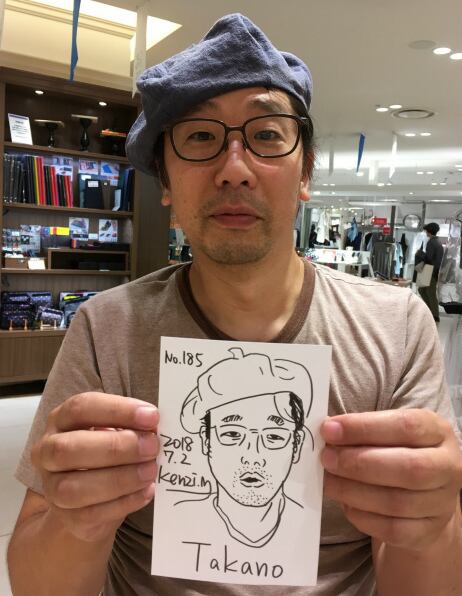 No.185
2018
7.2
Kenzi.M
Takano